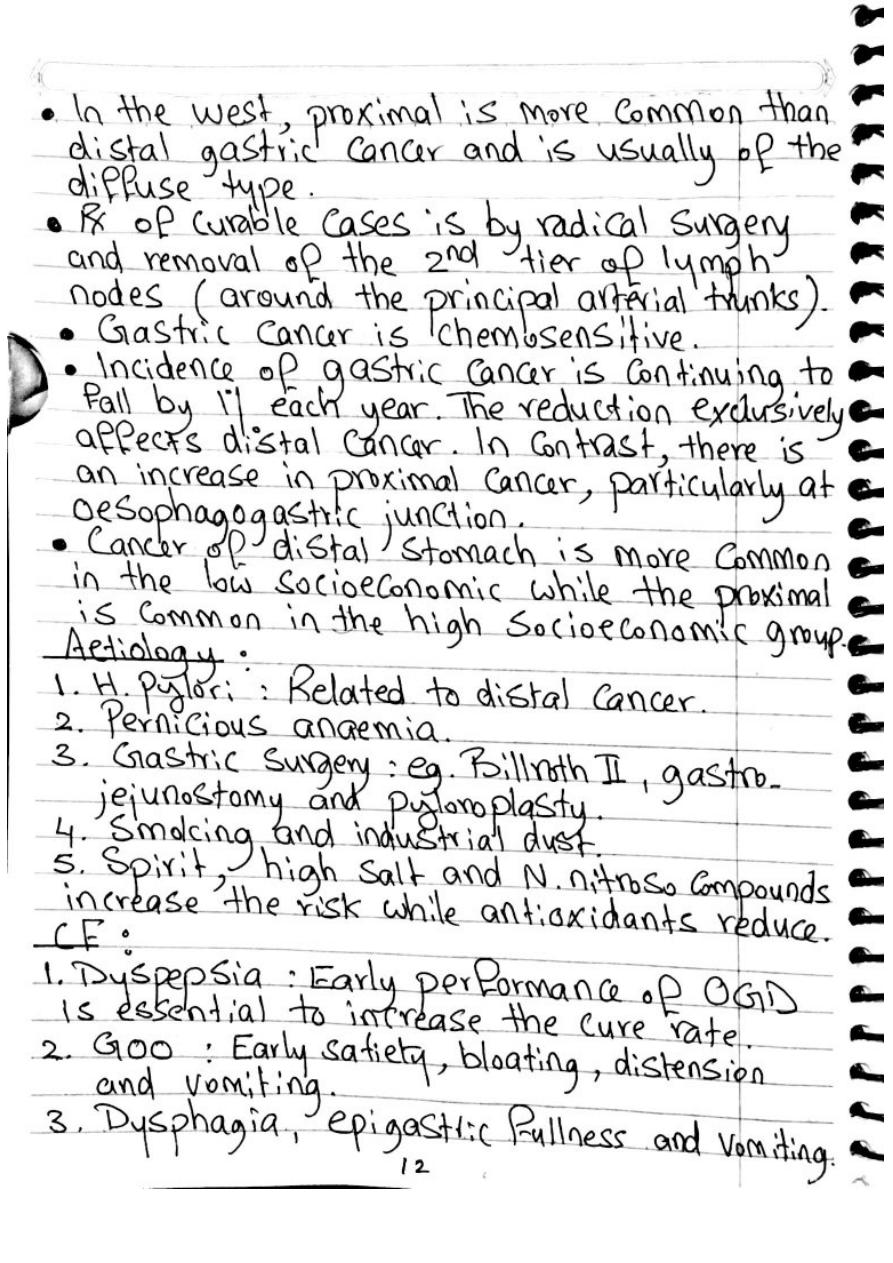 • In the west, proximal is more common than
distal gastric cancer and is usually of the
diffuse type.
• Rx of curable cases is by radical surgery
and removal of the 2nd tier of lymph
nodes (around the principal arterial trunks).
• Gastric cancer is chemosensitive.
• Incidence of gastric cancer is continuing to
fall by 1% each year. The reduction exclusively
affects distal cancer. In contrast, there is
an increase in proximal cancer, particularly at
oesophagogastric junction.
• Cancer of distal stomach is more common
in the low socioeconomic while the proximal
is common in the high socioeconomic group.
Aetiology :
1. H. Pylori : Related to distal cancer.
2. Pernicious anaemia.
3. Gastric surgery : eg. Billroth II, gastro-
jejunostomy and pyloroplasty.
4. Smoking and industrial dust.
5. Spirit, high salt and N. nitroso compounds
increase the risk while antioxidants reduce.
CF :
1. Dyspepsia : Early performance of OGD
is essential to increase the cure rate.
2. GOO : Early satiety, bloating, distension
and vomiting.
3. Dysphagia, epigastric fullness and vomiting.
12